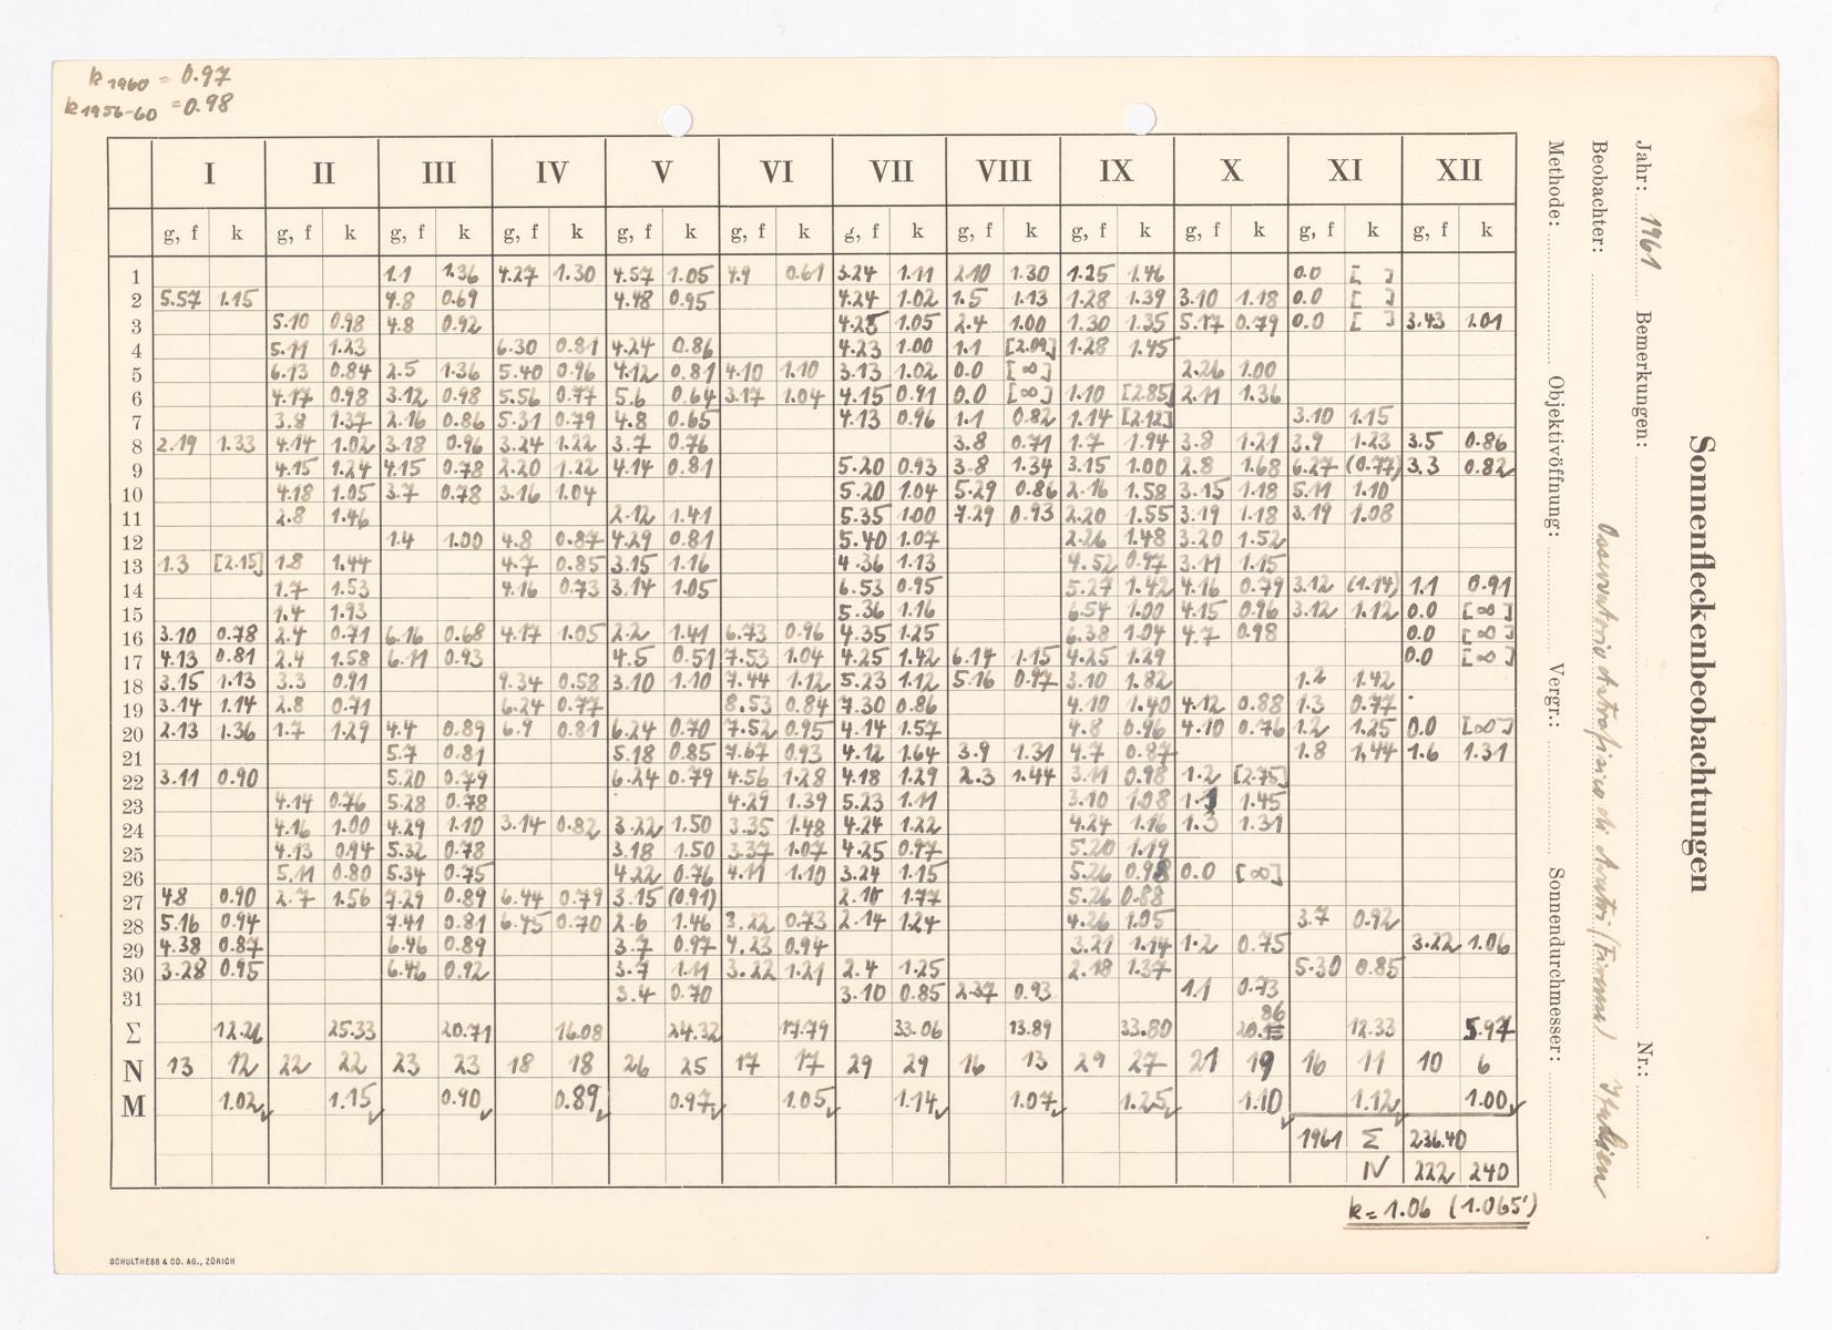 k1960 = 0.97
k1956-60 = 0.98
I II III IV V VI VII VIII IX X XI XII
g, f k g, f k g, f k g, f k g, f k g, f k g, f k g, f k g, f k g, f k g, f k g, f k
1 1.1 1.36 4.27 1.30 4.57 1.05 4.9 0.61 3.24 1.11 2.10 1.30 1.25 1.46 0.0 [ ]
2 5.57 1.15 4.8 0.69 4.48 0.95 4.24 1.02 1.5 1.13 1.28 1.39 3.10 1.18 0.0 [ ]
3 5.10 0.98 4.8 0.92 4.25 1.05 2.4 1.00 1.30 1.35 5.17 0.79 0.0 [ ] 3.43 1.01
4 5.11 1.23 6.30 0.81 4.24 0.86 4.23 1.00 1.1 [2.09] 1.28 1.45
5 6.13 0.84 2.5 1.36 5.40 0.96 4.12 0.81 4.10 1.10 3.13 1.02 0.0 [∞] 2.26 1.00
6 4.17 0.98 3.12 0.98 5.56 0.77 5.6 0.64 3.17 1.04 4.15 0.91 0.0 [∞] 1.10 [2.85] 2.11 1.36
7 3.8 1.37 2.16 0.86 5.31 0.79 4.8 0.65 4.13 0.96 1.1 0.82 1.14 [2.12] 3.10 1.15
8 2.19 1.33 4.14 1.02 3.18 0.96 3.24 1.22 3.7 0.76 3.8 0.71 1.7 1.94 3.8 1.21 3.9 1.23 3.5 0.86
9 4.15 1.24 4.15 0.78 2.20 1.22 4.14 0.81 5.20 0.93 3.8 1.34 3.15 1.00 2.8 1.68 6.27 (0.77) 3.3 0.82
10 4.18 1.05 3.7 0.78 3.16 1.04 5.20 1.04 5.29 0.86 2.16 1.58 3.15 1.18 5.11 1.10
11 2.8 1.46 2.12 1.41 5.35 1.00 7.29 0.93 2.20 1.55 3.19 1.18 3.19 1.08
12 1.4 1.00 4.8 0.87 4.29 0.81 5.40 1.07 2.26 1.48 3.20 1.52
13 1.3 [2.15] 1.8 1.44 4.7 0.85 3.15 1.16 4.36 1.13 4.52 0.97 3.11 1.15
14 1.7 1.53 4.16 0.73 3.14 1.05 6.53 0.95 5.27 1.42 4.16 0.79 3.12 (1.14) 1.1 0.91
15 1.4 1.93 5.36 1.16 6.54 1.00 4.15 0.96 3.12 1.12 0.0 [∞]
16 3.10 0.78 2.4 0.71 6.16 0.68 4.17 1.05 2.2 1.41 6.73 0.96 4.35 1.25 6.38 1.04 4.7 0.98 0.0 [∞]
17 4.13 0.81 2.4 1.58 6.11 0.93 4.5 0.51 7.53 1.04 4.25 1.42 6.14 1.15 4.25 1.29 0.0 [∞]
18 3.15 1.13 3.3 0.91 9.34 0.58 3.10 1.10 7.44 1.12 5.23 1.12 5.16 0.97 3.10 1.82 1.2 1.42
19 3.14 1.14 2.8 0.71 6.24 0.77 8.53 0.84 7.30 0.86 4.10 1.40 4.12 0.88 1.3 0.77
20 2.13 1.36 1.7 1.29 4.4 0.89 6.9 0.81 6.24 0.70 7.52 0.95 4.14 1.57 4.8 0.96 4.10 0.76 1.2 1.25 0.0 [∞]
21 5.7 0.81 5.18 0.85 7.67 0.93 4.12 1.64 3.9 1.31 4.7 0.87 1.8 1.44 1.6 1.31
22 3.11 0.90 5.20 0.79 6.24 0.79 4.56 1.28 4.18 1.29 2.3 1.44 3.11 0.98 1.2 [2.75]
23 4.14 0.76 5.28 0.78 4.29 1.39 5.23 1.11 3.10 1.08 1.1 1.45
24 4.16 1.00 4.29 1.10 3.14 0.82 3.22 1.50 3.35 1.48 4.24 1.22 4.24 1.16 1.3 1.31
25 4.13 0.94 5.32 0.78 3.18 1.50 3.37 1.07 4.25 0.97 5.20 1.19
26 5.11 0.80 5.34 0.75 4.22 0.76 4.11 1.10 3.24 1.15 5.26 0.98 0.0 [∞]
27 4.8 0.90 2.7 1.56 7.29 0.89 6.44 0.79 3.15 (0.91) 2.10 1.77 5.26 0.88
28 5.16 0.94 7.41 0.81 6.45 0.70 2.6 1.46 3.22 0.73 2.14 1.24 4.26 1.05 3.7 0.92
29 4.38 0.87 6.46 0.89 3.7 0.97 4.23 0.94 3.21 1.14 1.2 0.75 3.22 1.06
30 3.28 0.95 6.46 0.92 3.7 1.11 3.22 1.21 2.4 1.25 2.18 1.37 5.30 0.85
31 3.4 0.70 3.10 0.85 2.37 0.93 1.1 0.73
86
Σ 12.26 25.33 20.71 16.08 24.32 17.79 33.06 13.89 33.80 20. 12.33 5.97
N 13 12 22 22 23 23 18 18 26 25 17 17 29 29 16 13 29 27 21 19 16 11 10 6
M 1.02 1.15 0.90 0.89 0.97 1.05 1.14 1.07 1.25 1.10 1.12 1.00
1961 Σ 236.40
N 222 240
k = 1.06 (1.065')
SCHULTHESS & CO. AG., ZÜRICH
Sonnenfleckenbeobachtungen
Jahr: 1961 Bemerkungen: Nr.:
Beobachter: Osservatorio Astrofisico di Arcetri (Firenze) Italien
Methode: Objektivöffnung: Vergr.: Sonnendurchmesser: